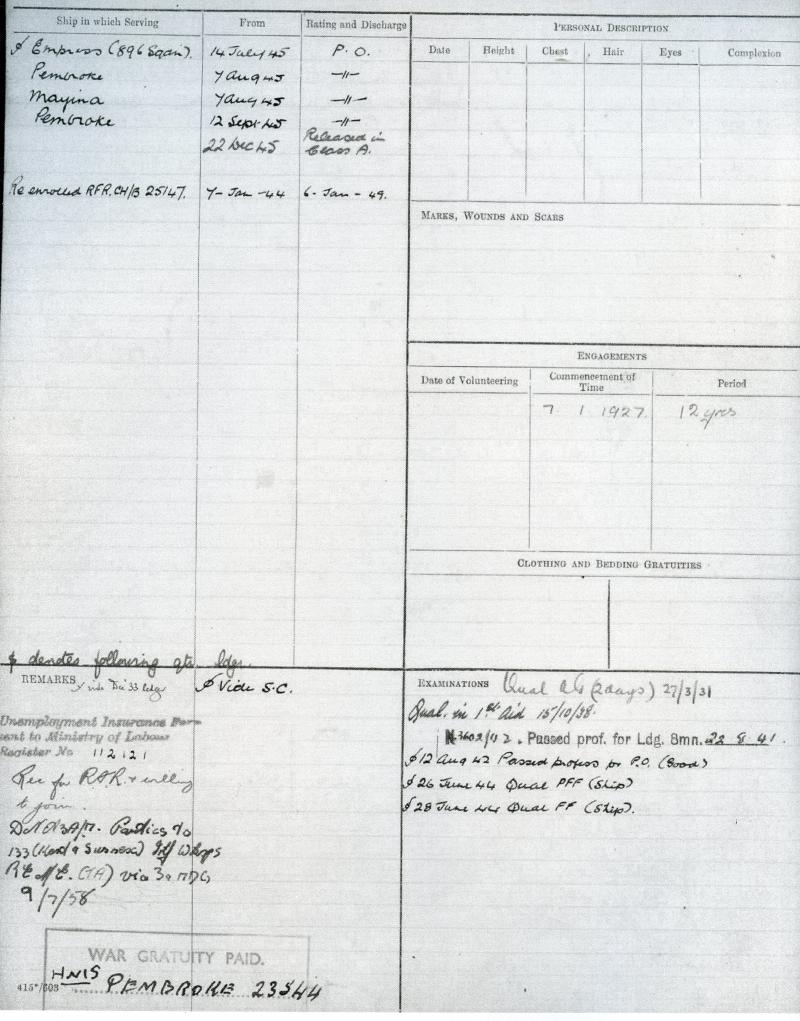 Ship in which Serving From Rating and Discharge
∮ Empress (896 Sqdn). 14 July 45 P. O.
Pembroke 7 Aug 45 -〃-
Mayina 7 Aug 45 -〃-
Pembroke 12 Sept 45 -〃-
22 Dec 45 Released in
Class A.
Re enrolled RFR. CH/B 25147. 7 - Jan - 44 6 - Jan - 49.
∮ denotes following qtr ldgr.
PERSONAL DESCRIPTION
Date Height Chest Hair Eyes Complexion
MARKS, WOUNDS AND SCARS
ENGAGEMENTS
Date of Volunteering Commencement of Time Period
7 1 1927. 12 yrs
CLOTHING AND BEDDING GRATUITIES
REMARKS vide Dec 33 ledgr ∮ Vide S.C.
Unemployment Insurance Form
sent to Ministry of Labour
Register No 112121
Rec for R.F.R. + willing
to join.
Partics to
133 (Kent & Sussex) Inf W'shops
R.E.M.E. (TA) via
9/7/58
WAR GRATUITY PAID.
HMS PEMBROKE 23544
415*/603
EXAMINATIONS Qual (2 days) 27/3/31
Qual. in 1st Aid 15/10/38.
N.3602/42. Passed prof. for Ldg. Smn. 22 8 41.
∮ 12 Aug 42 Passed profess for P.O. (Good)
∮ 26 June 44 Qual PFF (Ship)
∮ 28 June 44 Qual FF (Ship).